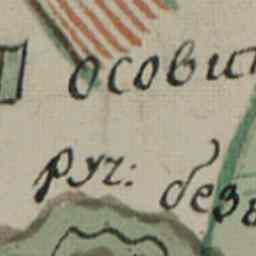 осови
руч: без